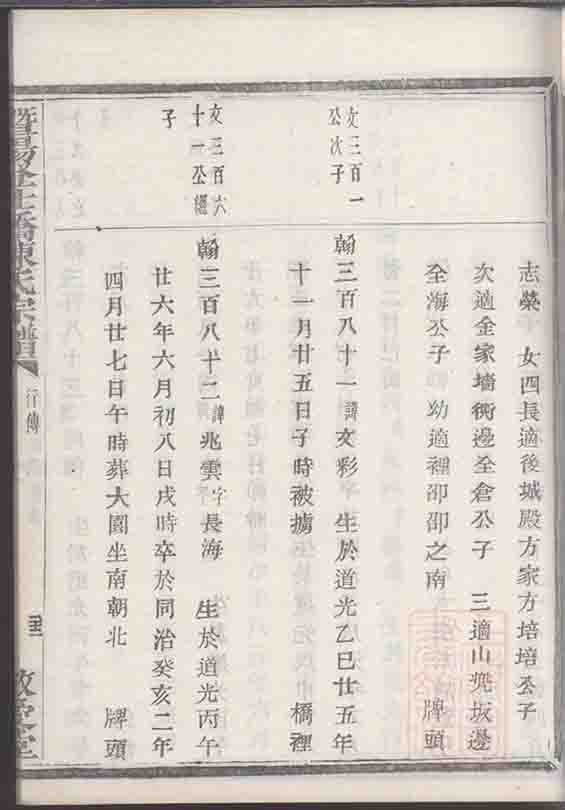 志榮 女四長適後城殿方家方培培公子
次適金家墻衖邊全倉公子 三適山兠坂邊
全海公子 幼適裡卲卲之南 牌頭
文三百一
公次子
翰三百八十一諱文彩 生於道光乙巳廿五年
十一月廿五日子時被擄 橋裡
文三百六
十一公繼
子
翰三百八十二諱兆雲字長海 生於道光丙午
廿六年六月初八日戌時卒於同治癸亥二年
四月廿七日午時葬大園坐南朝北 牌頭
陳氏宗譜
行傳